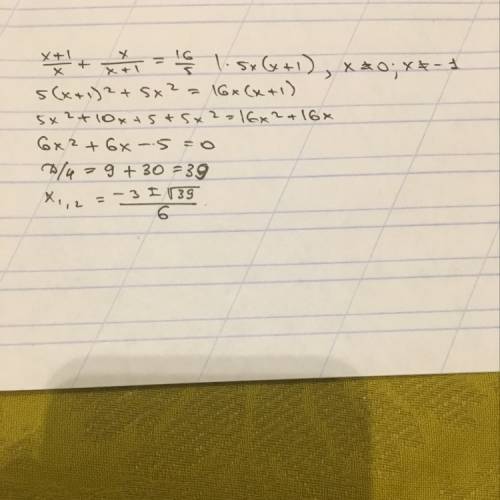 (x+1)/x + x/(x+1) = 16/5 | · 5x(x+1) , x≠0; x≠-1
5(x+1)² + 5x² = 16x(x+1)
5x² + 10x + 5 + 5x² = 16x² + 16x
6x² + 6x - 5 = 0
D/4 = 9 + 30 = 39
x₁,₂ = (-3 ± √39)/6